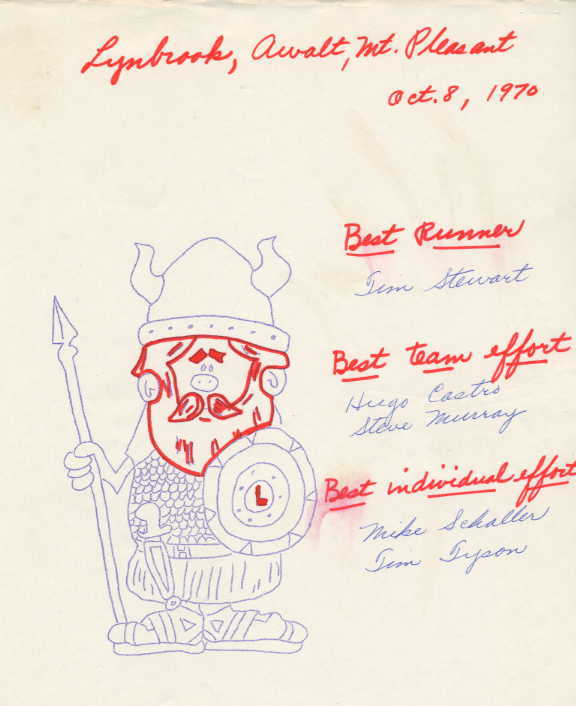 Lynbrook, Awalt, Mt. Pleasant
Oct. 8, 1970
Best Runner
Tim Stewart
Best team effort
Hugo Castro
Steve Murray
Best individual effort
Mike Schaller
Tim Tyson
L